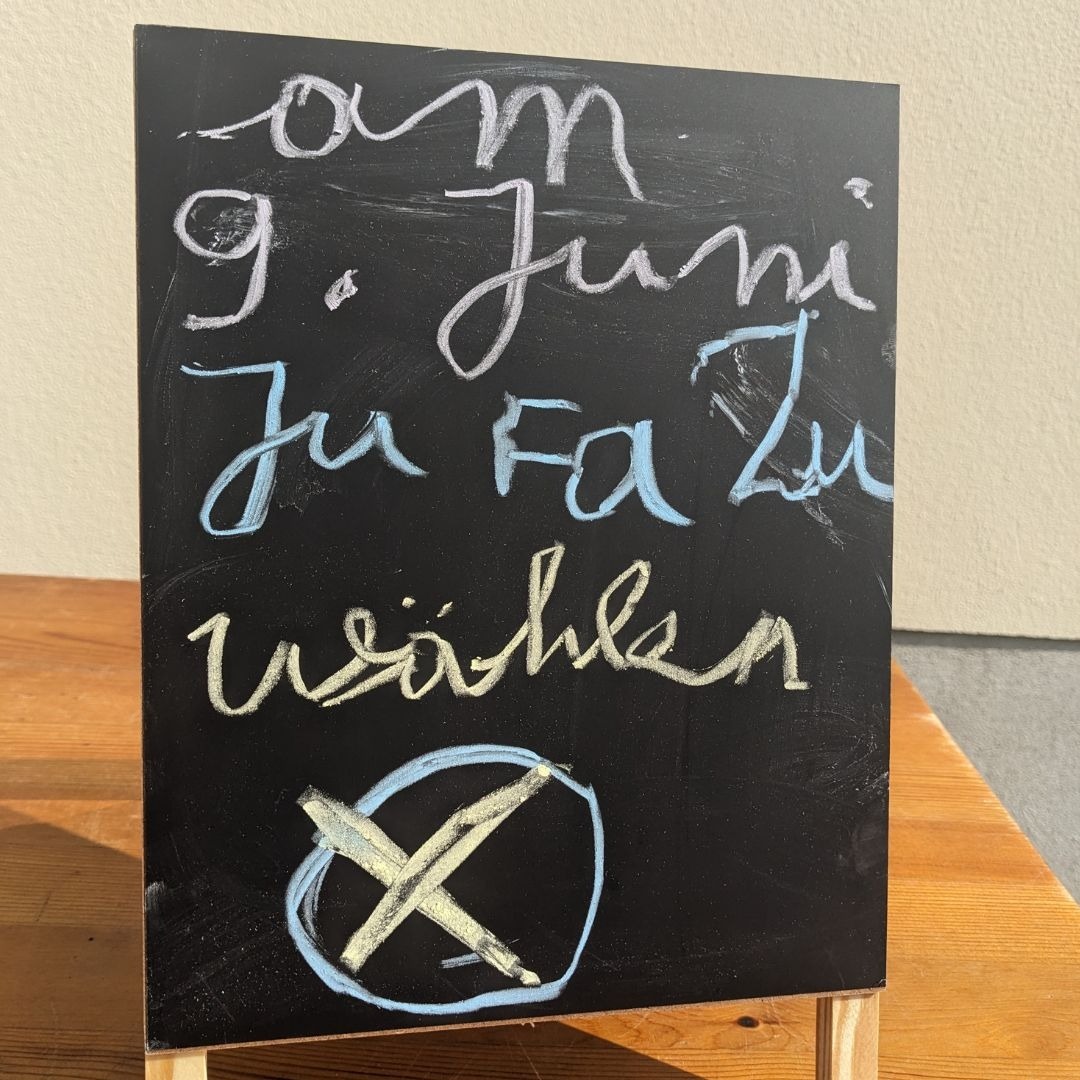 am
9. Juni
Ju Fa Zu
wählen